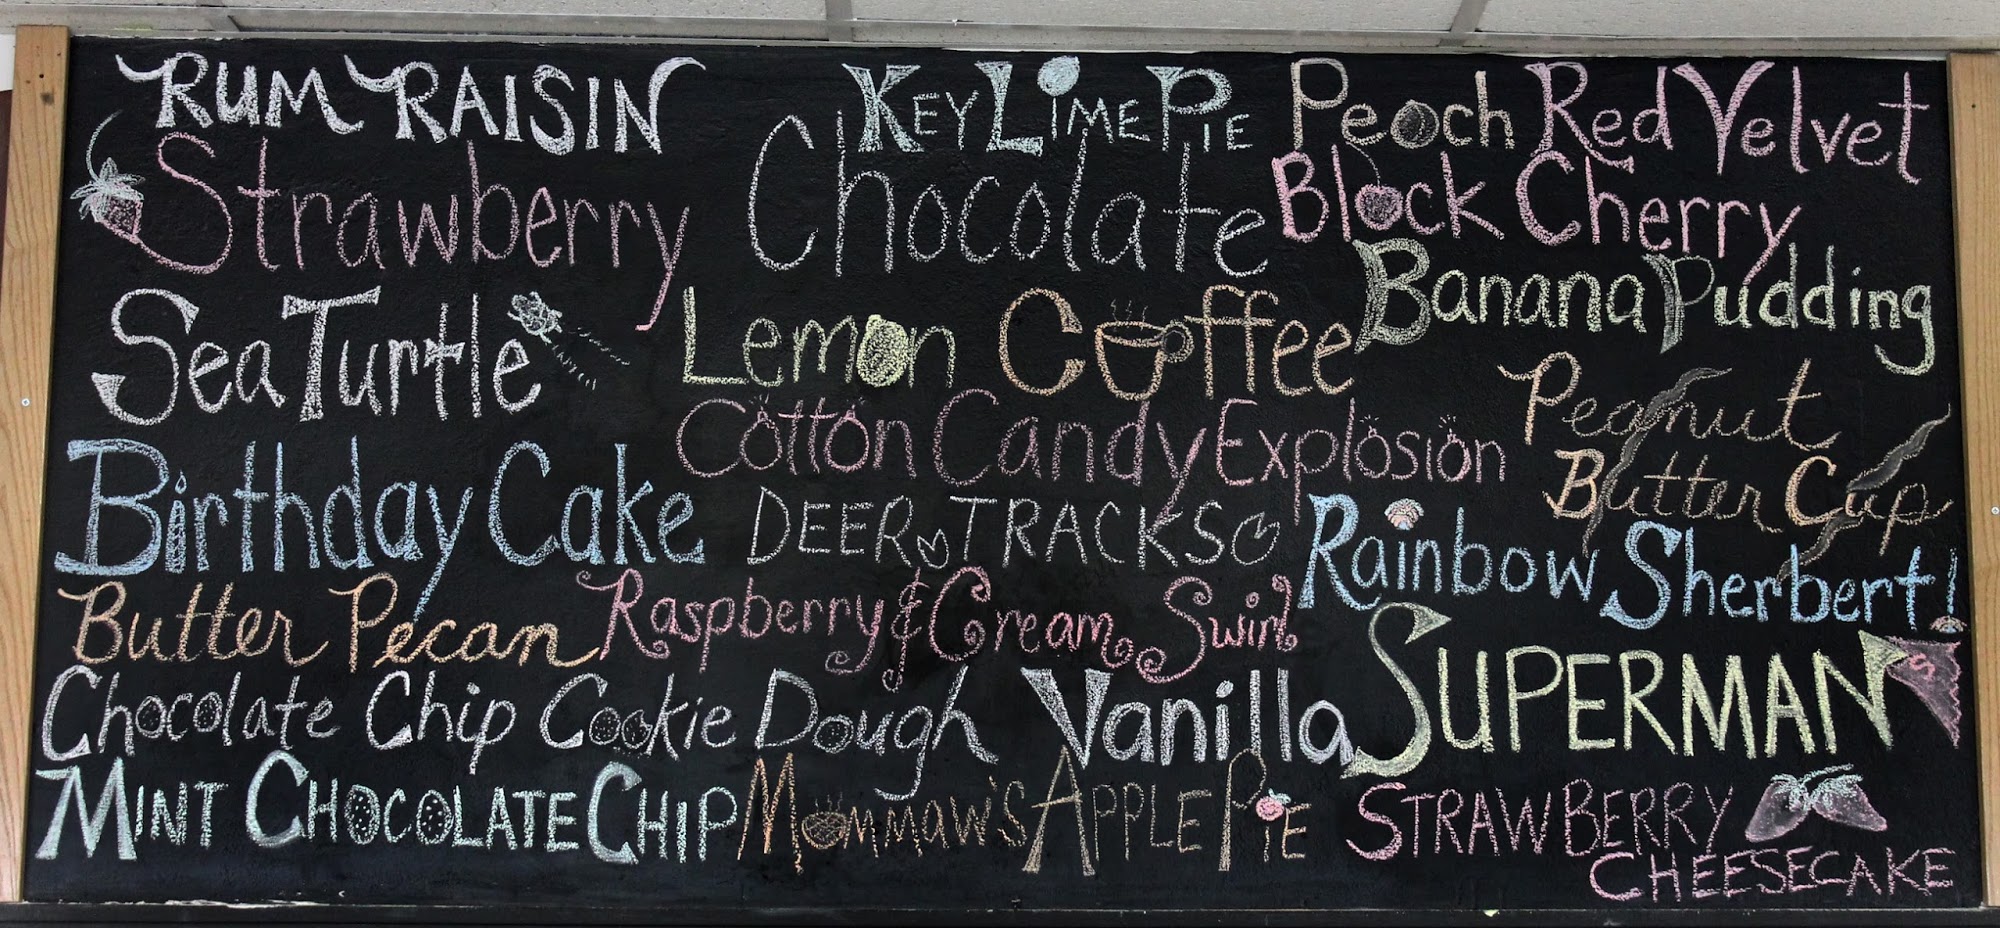 RUM RAISIN KEY LIME PIE Peach Red Velvet
Strawberry Chocolate Black Cherry
Banana Pudding
Sea Turtle Lemon Coffee
Peanut
Butter Cup
Cotton Candy Explosion
Birthday Cake DEER TRACKS Rainbow Sherbert!
Butter Pecan Raspberry & Cream Swirl
Chocolate Chip Cookie Dough Vanilla SUPERMAN
S
MINT CHOCOLATE CHIP MOMMAW'S APPLE PIE STRAWBERRY
CHEESECAKE